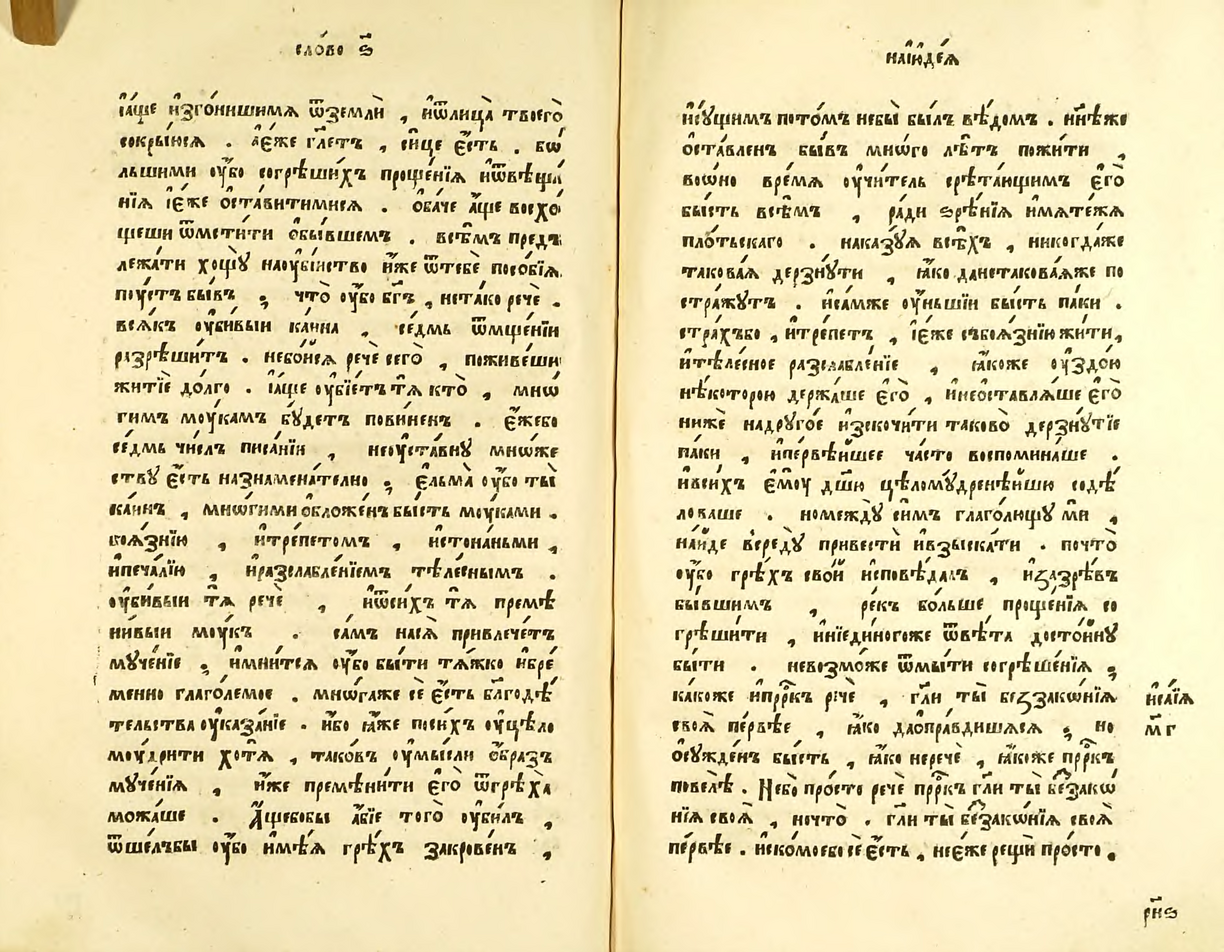 сло́во ѕ҃
і҆а҆́ще и҆зго́нишимѧ ѿземлѝ , и҆ѿлица̀ твоегѡ̀
сокры́юсѧ . а҆е҆́же гл҃етъ , си́це е҆́сть . бѡ
льшими оу҆́бо согрѣши́хъ проще́нїѧ и҆ѿвѣща
нїѧ і҆е҆́же оста́витимисѧ . оба́че а҆́ще восхо
щеши ѿмсти́ти ѻбы́вшемъ . всѣ́мъ предъ
лежа́ти хощꙋ̀ наоу҆бі́иство и҆́же ѿтебѐ посо́бїѧ
поу́стъ бы́въ ; что̀ оу҆́бо бг҃ъ , нета́ко речѐ .
всѧ́къ оу҆би́выи ка́ина , се́дмь ѿмще́нїи
разрѣши́тъ . небо́исѧ речѐ сегѡ̀ , поживе́ши
житїѐ до́лго . і҆а҆́ще оу҆бїе́тъ тѧ̀ кто̀ , мнѡ
гимъ моу́камъ бꙋ́детъ пови́ненъ . е҆́жебо
се́дмь чи́слъ писа́нїи , неоу҆ста́внꙋ мнѡ́же
ствꙋ е҆́сть назнамена́телно ; е҆льма̀ оу҆́бо ты̀
ка́инъ , мнѡ́гими обложе́нъ бы́сть моу́ками .
боѧ́знїю , и҆тре́петомъ , и҆стона́ньми ,
и҆печа́лїю , и҆разслабле́нїемъ тѣле́снымъ .
оу҆би́выи тѧ̀ речѐ , и҆ѿси́хъ тѧ̀ премѣ
ни́выи моу́къ . са́мъ насѧ̀ привлече́тъ
мꙋче́нїе ; и҆мни́тсѧ оу҆́бо бы́ти тѧ́жко и҆бре
менно глаго́лемое . мнѡ́гаже сѐ е҆́сть бл҃годѣ́
тельства оу҆каза́нїе . и҆́бо ꙗ҆́же поси́хъ оу҆цѣло
моу́дрити хотѧ̀ , тако́въ оу҆мы́сли ѻ҆́бразъ
мꙋче́нїѧ , и҆́же премѣни́ти е҆го̀ ѿгрѣха̀
можа́ше . А҆́щебобы а҆́бїе того̀ оу҆би́лъ ,
ѿше́лъбы оу҆́бо и҆мѣ́ѧ грѣ́хъ закрове́нъ ,
наїю҆де́ѧ
и҆сꙋ́щимъ пото́мъ небы̀ бы́лъ вѣ́домъ . нн҃ѣже
оста́вленъ бы́въ мнѡ́го лѣ́тъ пожи́ти ,
воѡ́но вре́мѧ оу҆чи́тель срѣта́ющимъ е҆го̀
бы́сть всѣ́мъ , ра́ди ѕрѣ́нїѧ и҆мѧте́жѧ
пло́тьскаго . наказꙋ́ѧ всѣ́хъ , никогда́же
такова́ѧ дерзнꙋ́ти , ꙗ҆́ко данетакова́ѧже по
стра́жꙋтъ . и҆са́мже оу҆́ньшїи бы́сть па́ки .
стра́хъбо , и҆тре́петъ , і҆е҆́же събоѧ́знїю жи́ти ,
и҆тѣле́сное разслабле́нїе , ꙗ҆́коже оу҆здо́ю
нѣ́которою держа́ше е҆го̀ , и҆неоставлѧ́ше е҆го̀
ни́же надрꙋго́е и҆зскочи́ти таково̀ дерзнꙋ́тїе
па́ки , и҆пе́рвѣишее ча́сто воспомина́ше .
и҆си́хъ е҆моу̀ дш҃ю цѣломꙋ́дренѣишю содѣ́
ловаше . номеждꙋ̀ си́мъ глаго́лющꙋ мѝ ,
наи́де вре́дꙋ привестѝ и҆взыска́ти . почто̀
оу҆́бо грѣ́хъ сво́и и҆сповѣ́далъ , и҆ꙁазрѣ́въ
бы́вшимъ , ре́къ бо́льше проще́нїѧ со
грѣши́ти , и҆нїеди́ногоже ѿвѣ́та досто́инꙋ
бы́ти . невозмо́же ѿмы́ти согрѣше́нїѧ ;
ка́коже и҆прⷪ҇ркъ речѐ , гл҃и ты̀ беззако́нїѧ
своѧ̀ пе́рвѣе , ꙗ҆́ко даоправди́шисѧ ; но
осꙋжде́нъ бы́сть , ꙗ҆́ко неречѐ , ꙗ҆́коже прⷪ҇ркъ
повелѣ̀ . Не́бо про́сто речѐ прⷪ҇ркъ гл҃и ты̀ беззако
нїѧ своѧ̀ , ночто̀ . гл҃и ты̀ беззакѡ́нїѧ своѧ̀
пе́рвѣе . и҆ско́моебо сѐ е҆́сть , неє́же рещѝ про́сто .
и҆са́їѧ
м҃г
рн҃ѕ